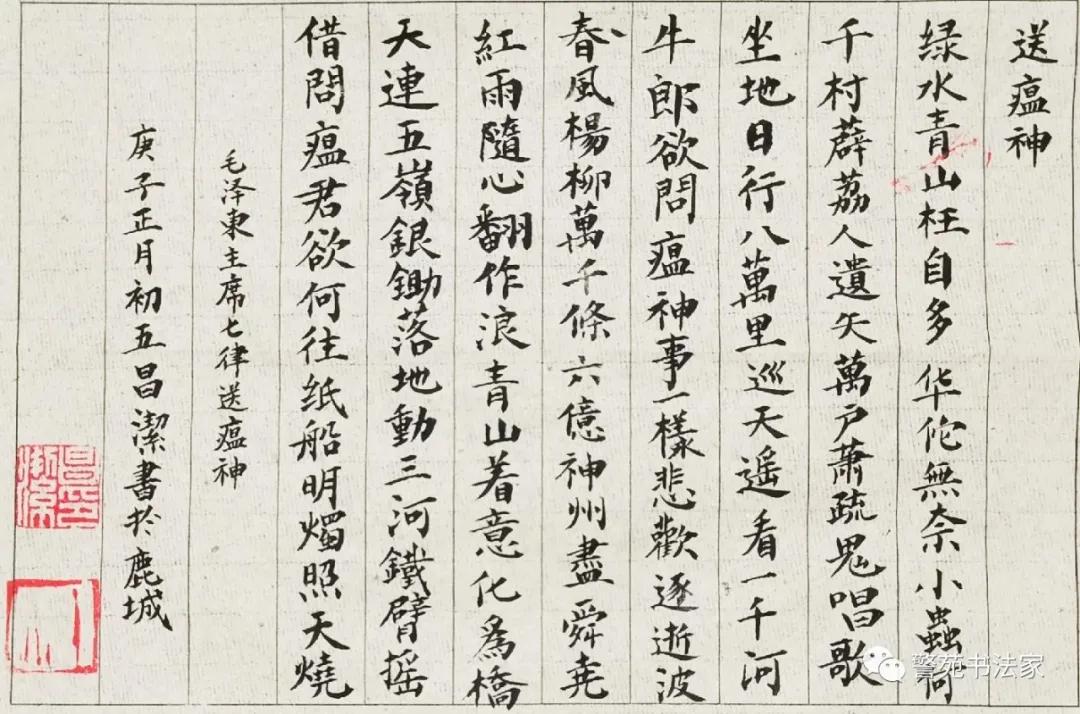 送瘟神
绿水青山枉自多华佗無奈小蟲何
千村薜荔人遺矢萬戶蕭疏鬼唱歌
坐地日行八萬里巡天遥看一千河
牛郎欲問瘟神事一樣悲歡逐逝波
春風楊柳萬千條六億神州盡舜尭
紅雨隨心翻作浪青山着意化為橋
天連五嶺銀鋤落地動三河鐵臂摇
借問瘟君欲何往纸船明燭照天燒
毛泽東主席七律送瘟神
庚子正月初五昌潔書於鹿城
警苑书法家